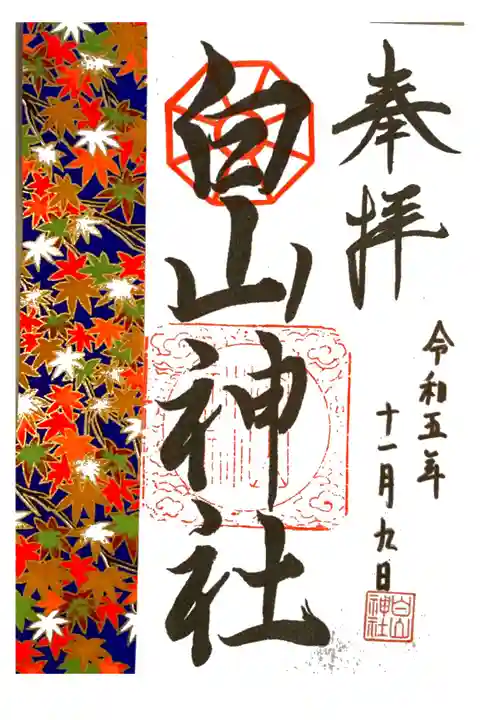 奉拝
白山神社
令和五年
十一月九日
白山
神社